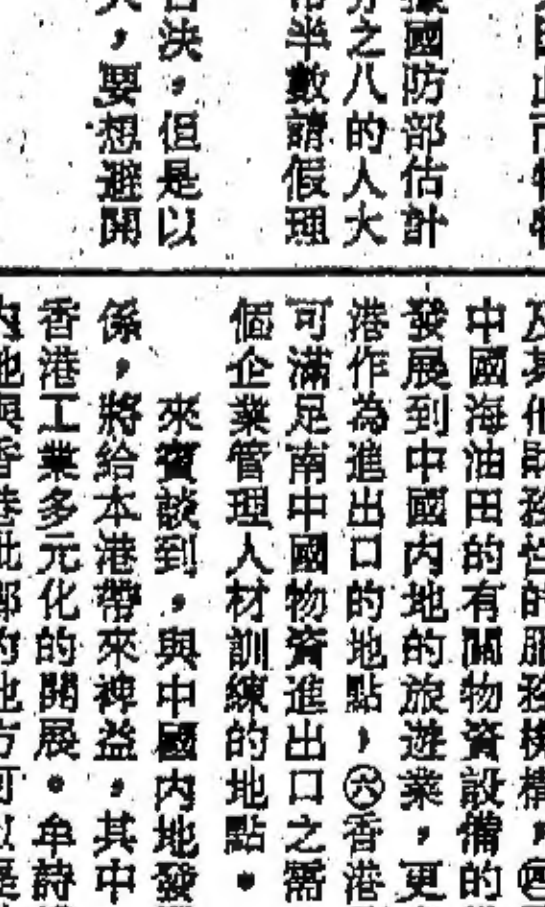 國防部估計
之八的人大
半數請假理
決，但是以
，要想避開
及其他財務性的服務機構，四
中國海油田的有關物資設備的
發展到中國內地的旅遊業，更
港作為進出口的地點，㊅香港
可滿足南中國物資進出口之需
個企業管理人材訓練的地點。
來賓談到，與中國內地發
係，將給本港帶來裨益，其中
香港工業多元化的開展。牟詩
內地與香港毗鄰的地方可以是